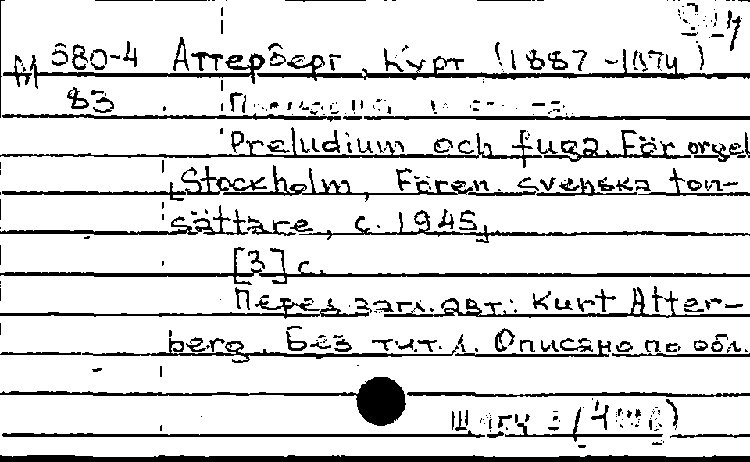 М 580-4 Аттерберг, Курт (1887-1974)
83
Preludium och fuga. För orgel
[Stockholm, Fören. svenska ton-
sättare, c. 1945]
[3] с.
Перед загл. авт.: Kurt Atter-
berg. Без тит. л. Описано по обл.